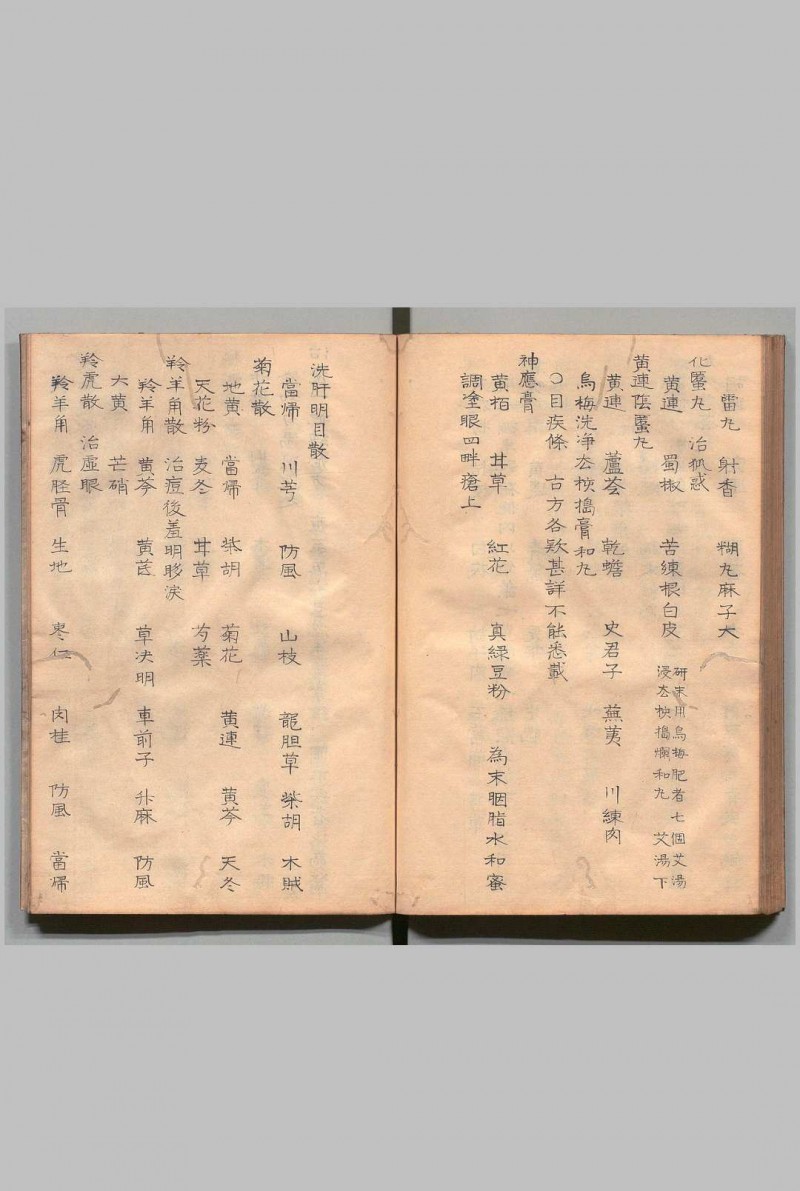 雷丸　射香　糊丸麻子大
化䘌丸　治狐惑
黄連　蜀椒　苦練根白皮　研末用烏梅肥者七個艾湯
浸去核搗爛和丸　艾湯下
黄連陰䘌丸
黄連　蘆荟　乾蟾　史君子　蕪荑　川練肉
烏梅洗净去核搗膏和丸
〇目疾條　古方各欵甚詳不能悉載
神應膏
黄栢　甘草　紅花　真緑豆粉　為末胭脂水和蜜
調塗眼四畔瘡上
洗肝明目散
當帰　川芎　防風　山枝　龍胆草　柴胡　木賊
菊花散
地黄　當帰　柴胡　菊花　黄連　黄芩　天冬
天花粉　麦冬　甘草　芍薬
羚羊角散　治痘後羞明眵淚
羚羊角　黄芩　黄芪　草决明　車前子　升麻　防風
大黄　芒硝
羚虎散　治虚眼
羚羊角　虎胫骨　生地　枣仁　肉桂　防風　當帰